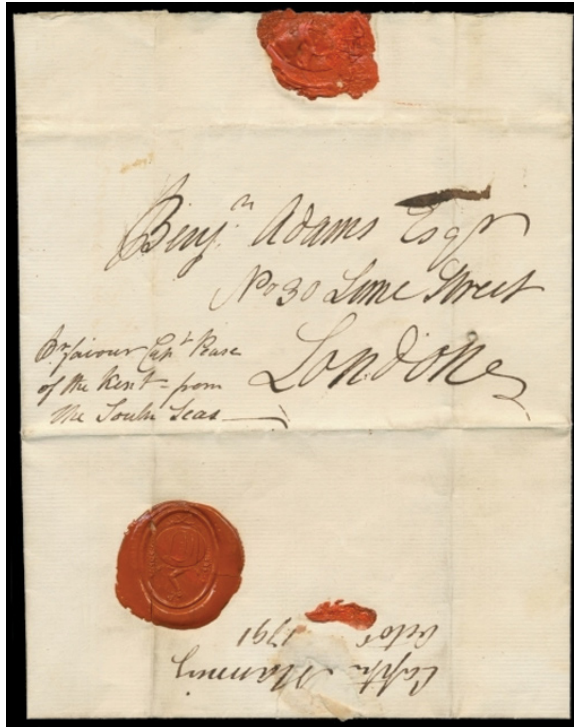 Benjn. Adams Esqr
No 30 Lime Street
London
Pr. favour Capt
of the Kent - from
the South Seas
Captn. Manning
Octor. 1791